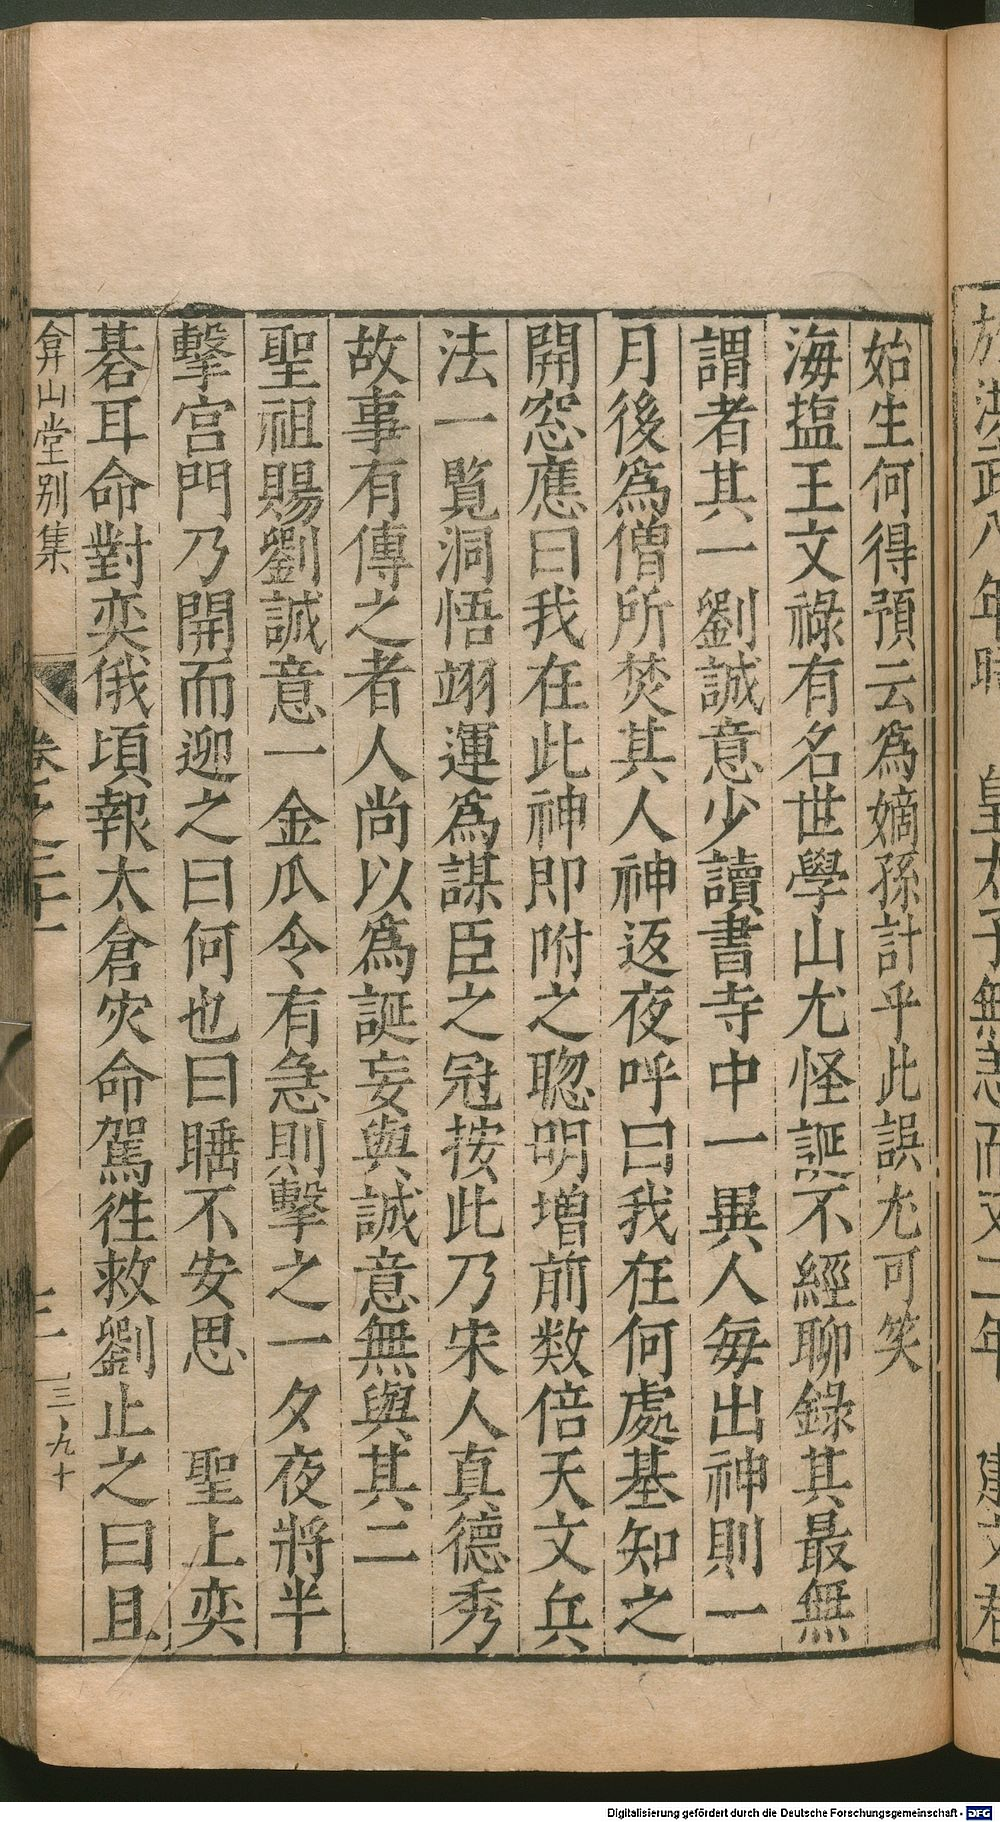 於洪武八年時 皇太子無恙而又二年 建文君
始生何得預云爲嫡孫計乎此誤尤可笑
海塩王文祿有名世學山尤怪誕不經聊錄其最無
謂者其一劉誠意少讀書寺中一異人每出神則一
月後爲僧所焚其人神返夜呼曰我在何處基知之
開窓應曰我在此神即附之聦明增前数倍天文兵
法一覧洞悟翊運爲謀臣之冠按此乃宋人真德秀
故事有傳之者人尚以爲誕妄與誠意無與其二
聖祖賜劉誠意一金瓜令有急則擊之一夕夜將半
擊宫門乃開而迎之曰何也曰睡不安思 聖上奕
碁耳命對奕俄頃報太倉灾命駕徃救劉止之曰且
弇山堂别集
卷之二十一
三九十
Digitalisierung gefördert durch die Deutsche Forschungsgemeinschaft - DFG